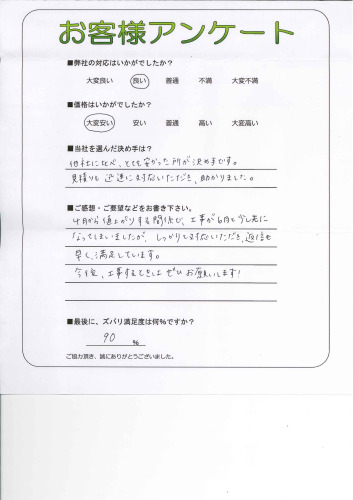 お客様アンケート
■弊社の対応はいかがでしたか？
大変良い 良い 普通 不満 大変不満
■価格はいかがでしたか？
大変安い 安い 普通 高い 大変高い
■当社を選んだ決め手は？
他社に比べ、とても安かった所が決め手です。
見積りも迅速に対応いただき、助かりました。
■ご感想・ご要望などをお書き下さい。
4月から値上がりする関係で、工事が6月と少し先に
なってしまいましたが、しっかりと対応いただき、返信も
早く、満足しています。
今後、工事するときは ぜひ お願いします！
■最後に、ズバリ満足度は何％ですか？
90 ％
ご協力頂き、誠にありがとうございました。